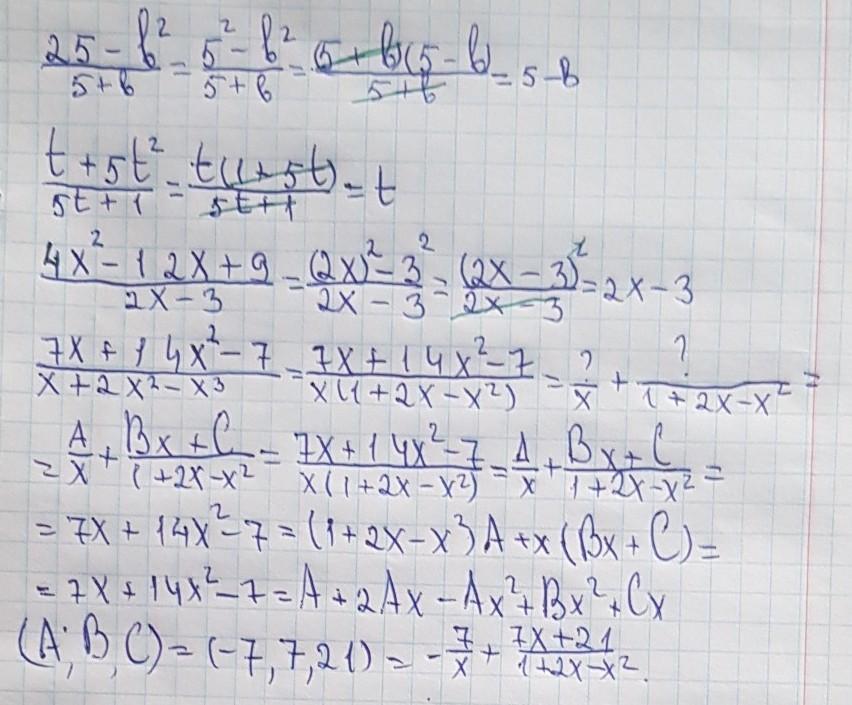 (25 - b²)/(5 + b) = (5² - b²)/(5 + b) = ((5 + b)(5 - b))/(5 + b) = 5 - b
(t + 5t²)/(5t + 1) = (t(1 + 5t))/(5t + 1) = t
(4x² - 12x + 9)/(2x - 3) = ((2x)² - 3²)/(2x - 3) = (2x - 3)²/(2x - 3) = 2x - 3
(7x + 14x² - 7)/(x + 2x² - x³) = (7x + 14x² - 7)/(x(1 + 2x - x²)) = ?/x + ?/(1 + 2x - x²) =
= A/x + (Bx + C)/(1 + 2x - x²) = (7x + 14x² - 7)/(x(1 + 2x - x²)) = A/x + (Bx + C)/(1 + 2x - x²) =
= 7x + 14x² - 7 = (1 + 2x - x²)A + x(Bx + C) =
= 7x + 14x² - 7 = A + 2Ax - Ax² + Bx² + Cx
(A; B, C) = (-7, 7, 21) = -7/x + (7x + 21)/(1 + 2x - x²).